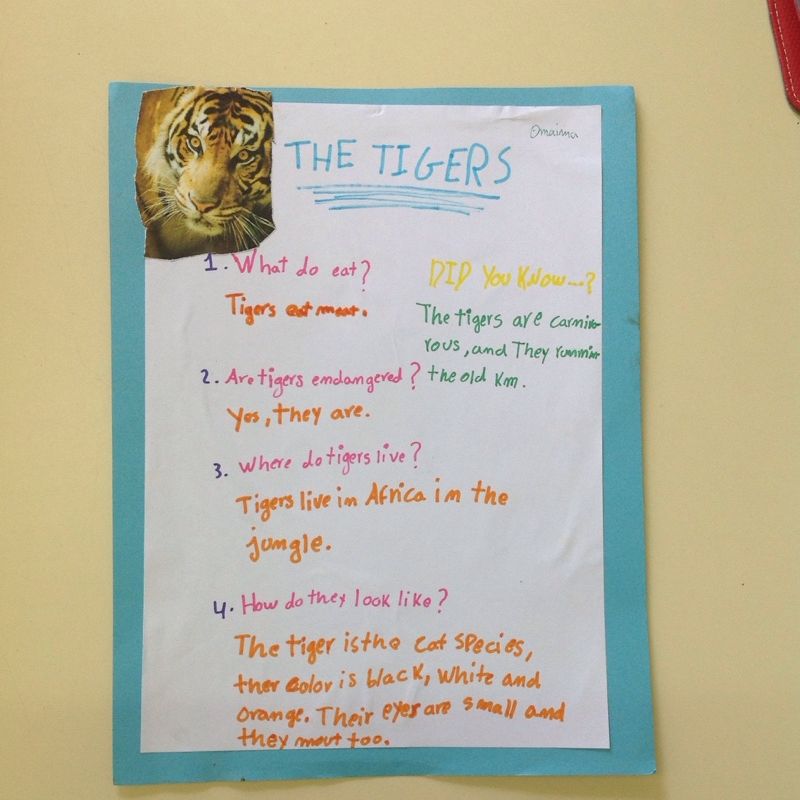 Omaima
THE TIGERS
1. What do eat?
Tigers eat meat.
DID YOU KNOW....?
The tigers are carnivo-
rous, and They runnin
the old Km.
2. Are tigers endangered?
Yes, they are.
3. Where do tigers live?
Tigers live in Africa in the
jungle.
4. How do they look like?
The tiger is the cat species,
ther color is black, white and
orange. Their eyes are small and
they mout too.